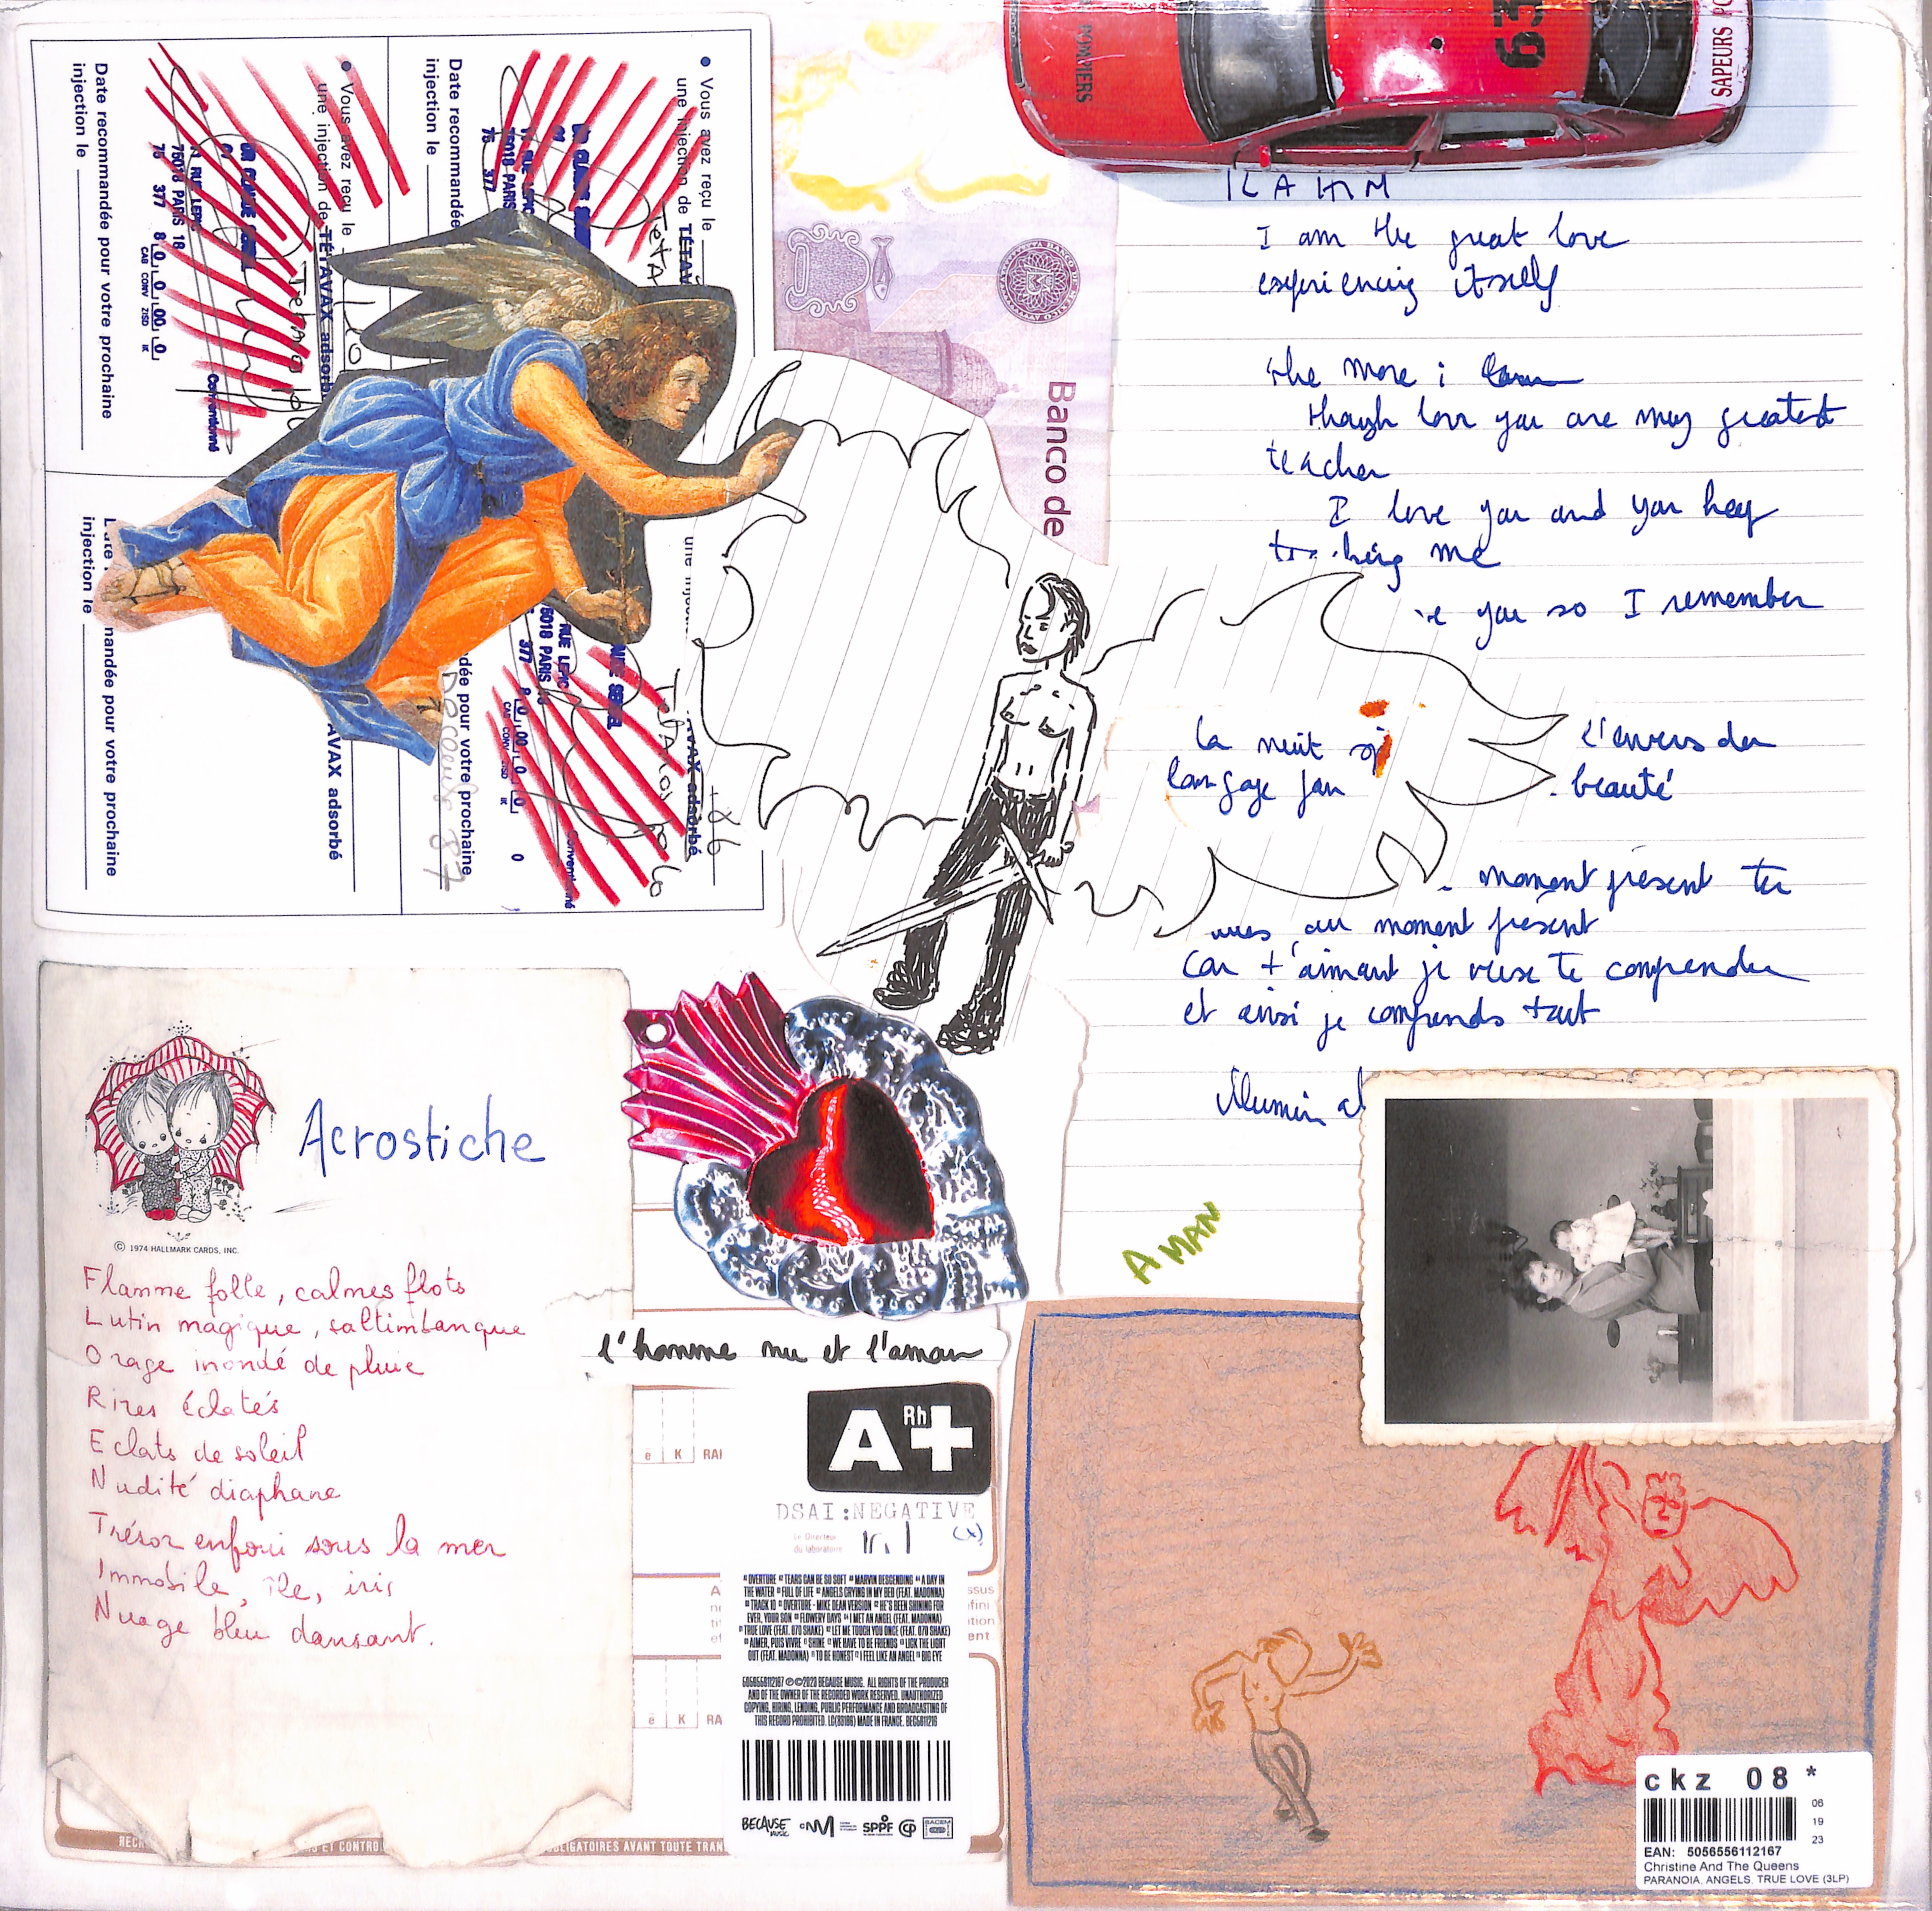 POMPIERS
63
SAPEURS PO
Date recommandée pour votre prochaine
injection le
• Vous avez reçu le
une injection de TÉTAVAX adsorbé
Tetnopolo
21 RUE LEPIC
75018 PARIS 18
75 377 8 0 0 00 0
CAB CONV ZISD IK
Conventionné
Date recommandée
injection le
• Vous avez reçu le
une injection de TÉTAV
75018 PARIS
75 377
Date
injection le
mandée pour votre prochaine
AVAX adsorbé
dée pour votre prochaine
87
une injection
RUE LEPIC
5018 PARIS
377 8 0 00 0 0
CAB CONV ZISD IK
Conventionné
AVAX adsorbé
86
Banco de
I am the great love
experiencing itself
the more i learn
though love you are my greatest
teacher
I love you and you keep
me
you so I remember
la nuit
langage
l'envers du
beauté
moment présent tu
au moment présent
car t'aimant je veux te comprendre
et ainsi je comprends tout
A MAN
Acrostiche
© 1974 HALLMARK CARDS, INC.
Flamme folle, calmes flots
Lutin magique, saltimbanque
Orage inondé de pluie
Rires éclatés
Eclats de soleil
Nudité diaphane
Trésor enfoui sous la mer
Immobile, île, iris
Nuage bleu dansant.
l'homme nu et l'amour
A Rh+
ē K RAI
DSAI:NEGATIVE
(x)
Le Directeur
du laboratoire
OVERTURE TEARS CAN BE SO SOFT MARVIN DESCENDING A DAY IN
THE WATER FULL OF LIFE ANGELS CRYING IN MY BED (FEAT. MADONNA)
TRACK 10 OVERTURE - MIKE DEAN VERSION HE'S BEEN SHINING FOR
EVER, YOUR SON FLOWERY DAYS I MET AN ANGEL (FEAT. MADONNA)
TRUE LOVE (FEAT. 070 SHAKE) LET ME TOUCH YOU ONCE (FEAT. 070 SHAKE)
AIMER, PUIS VIVRE SHINE WE HAVE TO BE FRIENDS LICK THE LIGHT
OUT (FEAT. MADONNA) TO BE HONEST I FEEL LIKE AN ANGEL BIG EYE
5056556112167 ℗©2023 BECAUSE MUSIC. ALL RIGHTS OF THE PRODUCER
AND OF THE OWNER OF THE RECORDED WORK RESERVED. UNAUTHORIZED
COPYING, HIRING, LENDING, PUBLIC PERFORMANCE AND BROADCASTING OF
THIS RECORD PROHIBITED. LC(33186) MADE IN FRANCE. BEC5611216
ē K RA
BECAUSE MUSIC SPPF SACEM
ET CONTRO
OBLIGATOIRES AVANT TOUTE TRAN
ckz 08 *
06
19
23
EAN: 5056556112167
Christine And The Queens
PARANOIA, ANGELS, TRUE LOVE (3LP)